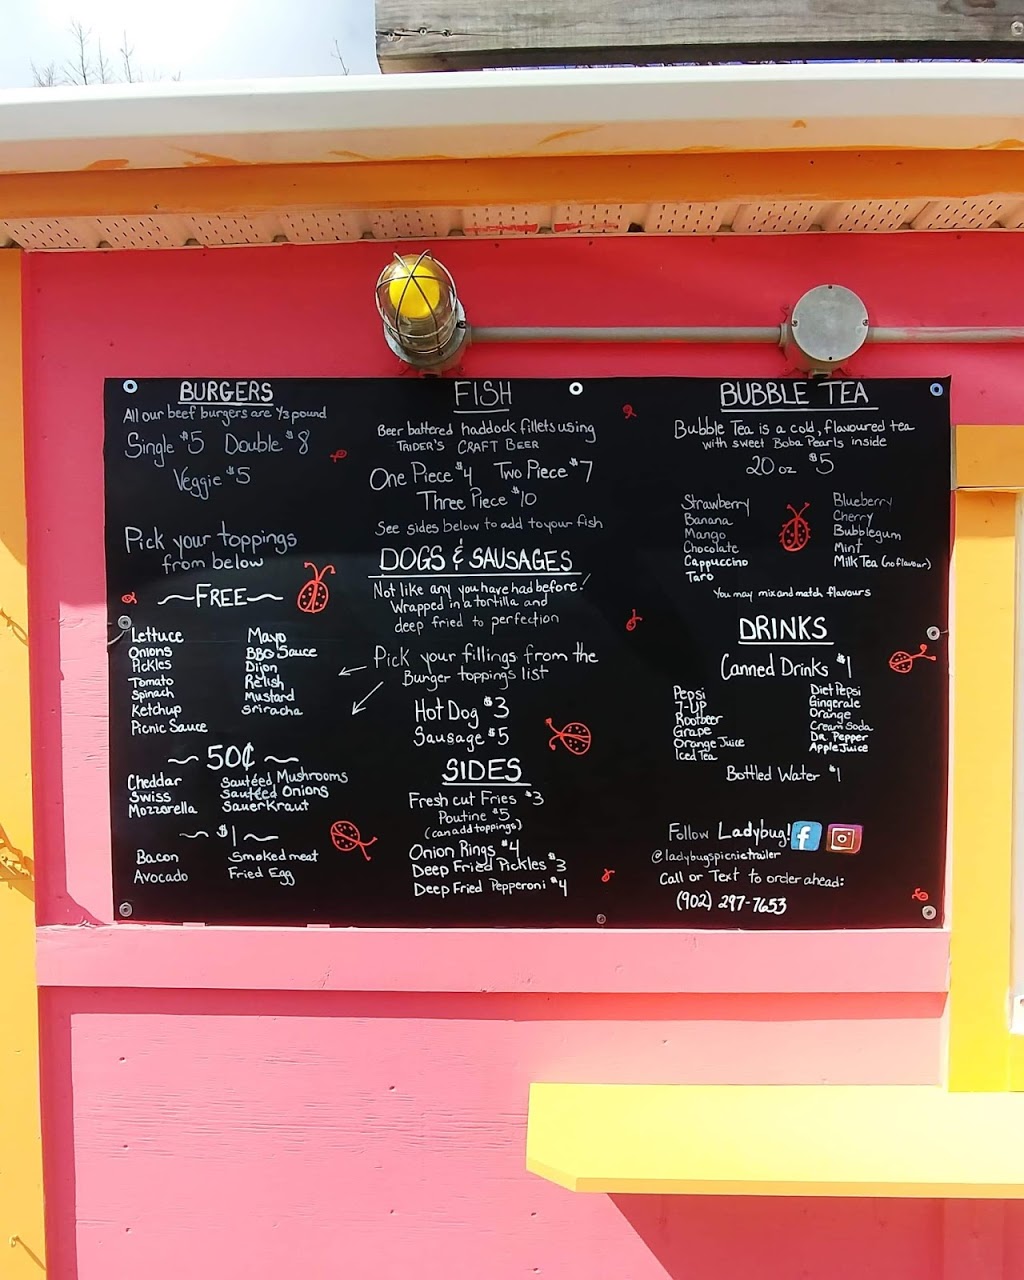 BURGERS
All our beef burgers are 1/3 pound
Single $5 Double $8
Veggie $5
Pick your toppings
from below
~FREE~
Lettuce
Onions
Pickles
Tomato
Spinach
Ketchup
Picnic Sauce
Mayo
BBQ Sauce
Dijon
Relish
Mustard
Sriracha
~ 50¢ ~
Cheddar
Swiss
Mozzarella
Sautéed Mushrooms
Sautéed Onions
Sauerkraut
~ $1 ~
Bacon
Avocado
Smoked meat
Fried Egg
FISH
Beer battered haddock fillets using
TRIDER'S CRAFT BEER
One Piece $4 Two Piece $7
Three Piece $10
See sides below to add to your fish
DOGS & SAUSAGES
Not like any you have had before!
Wrapped in a tortilla and
deep fried to perfection
Pick your fillings from the
Burger toppings list
Hot Dog $3
Sausage $5
SIDES
Fresh cut Fries $3
Poutine $5
(can add toppings)
Onion Rings $4
Deep Fried Pickles $3
Deep Fried Pepperoni $4
BUBBLE TEA
Bubble Tea is a cold, flavoured tea
with sweet Boba Pearls inside
20 oz $5
Strawberry
Banana
Mango
Chocolate
Cappuccino
Taro
Blueberry
Cherry
Bubblegum
Mint
Milk Tea (no flavour)
You may mix and match flavours
DRINKS
Canned Drinks $1
Pepsi
7-UP
Rootbeer
Grape
Orange Juice
Iced Tea
Diet Pepsi
Gingerale
Orange
Cream Soda
Dr. Pepper
Apple Juice
Bottled Water $1
Follow Ladybug! f
@ladybugspicnictrailer
Call or Text to order ahead:
(902) 297-7653